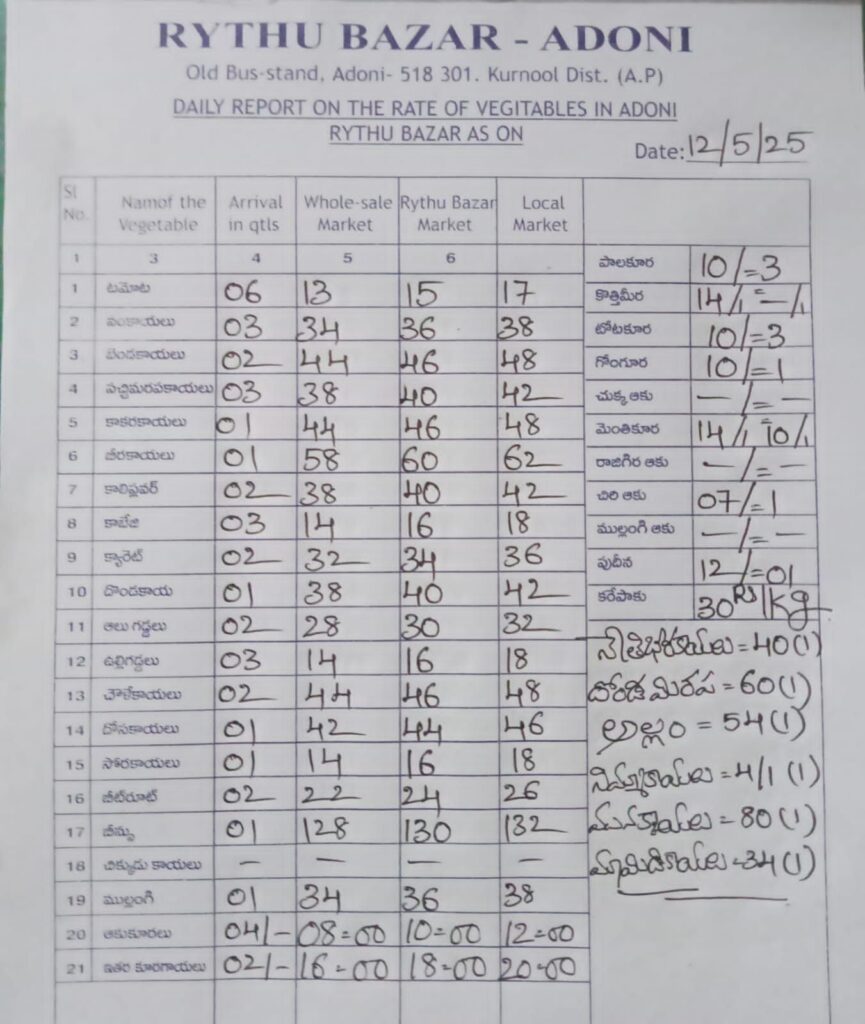 RYTHU BAZAR - ADONI
Old Bus-stand, Adoni- 518 301. Kurnool Dist. (A.P)
DAILY REPORT ON THE RATE OF VEGITABLES IN ADONI
RYTHU BAZAR AS ON
Date: 12/5/25
Sl No. Namof the Vegetable Arrival in qtls Whole-sale Market Rythu Bazar Market Local Market
1 3 4 5 6
1 టమోట 06 13 15 17
2 వంకాయలు 03 34 36 38
3 బెండకాయలు 02 44 46 48
4 పచ్చిమిరపకాయలు 03 38 40 42
5 కాకరకాయలు 01 44 46 48
6 బీరకాయలు 01 58 60 62
7 కాలిఫ్లవర్ 02 38 40 42
8 కాబేజి 03 14 16 18
9 క్యారెట్ 02 32 34 36
10 దొండకాయ 01 38 40 42
11 ఆలు గడ్డలు 02 28 30 32
12 ఉల్లిగడ్డలు 03 14 16 18
13 చౌళేకాయలు 02 44 46 48
14 దోసకాయలు 01 42 44 46
15 సోరకాయలు 01 14 16 18
16 బీట్‌రూట్ 02 22 24 26
17 బీన్సు 01 128 130 132
18 చిక్కుడు కాయలు — — — —
19 ముల్లంగి 01 34 36 38
20 ఆకుకూరలు 04/- 08=00 10=00 12=00
21 ఇతర కూరగాయలు 02/- 16=00 18=00 20=00
పాలకూర 10/=3
కొత్తిమీర 14/1 = —/1
టోటకూర 10/=3
గోంగూర 10/=1
చుక్క ఆకు —/= —
మెంతికూర 14/1 = 10/1
రాజగిర ఆకు —/= —
చిరి ఆకు 07/=1
ముల్లంగి ఆకు —/= —
పుదీన 12/=01
కరేపాకు 30 Rs/Kg
= 40 (1)
మిరప = 60 (1)
అల్లం = 54 (1)
నిమ్మకాయలు = 4/1 (1)
మునక్కాయలు = 80 (1)
మామిడికాయలు = 34 (1)